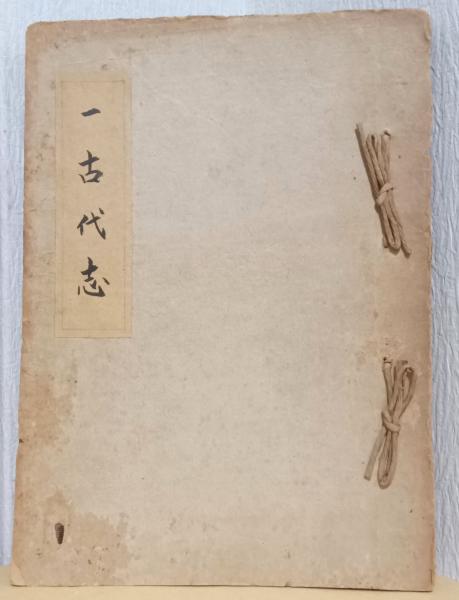 一古代志